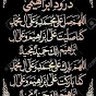 درود ابراہیمی
اللهم صل على محمد وعلى ال محمد
كما صليت على ابراهيم وعلى ال
ابراهيم انك حميد مجيد
اللهم بارك على محمد وعلى ال محمد
كما باركت على ابراهيم وعلى ال
ابراهيم انك حميد مجيد